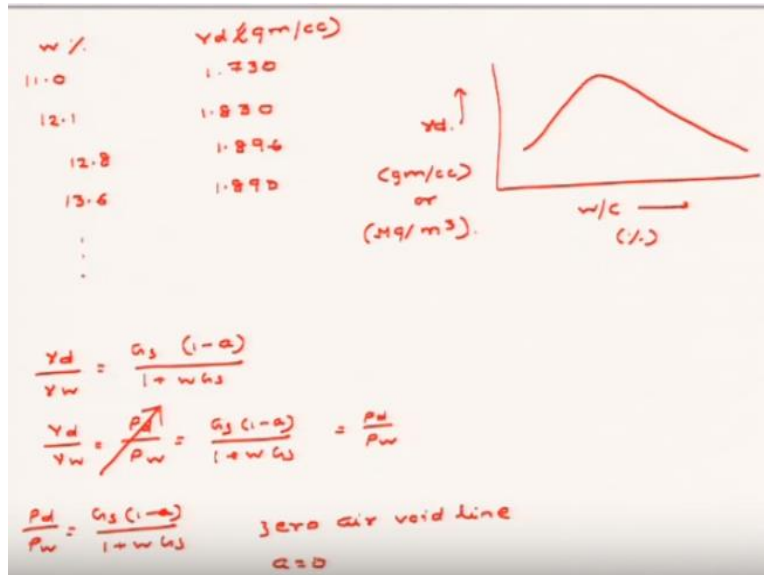 w %. γd (gm/cc)
11.0 1.730
12.1 1.830
12.8 1.896
13.6 1.890
γd. ↑
(gm/cc)
or
(Mg/m³).
w/c →
(%)
γd/γw = Gs (1-a)/1+wGs
γd/γw = ρd/ρw = Gs(1-a)/1+wGs = ρd/ρw
ρd/ρw = Gs(1-a)/1+wGs zero air void line
a=0